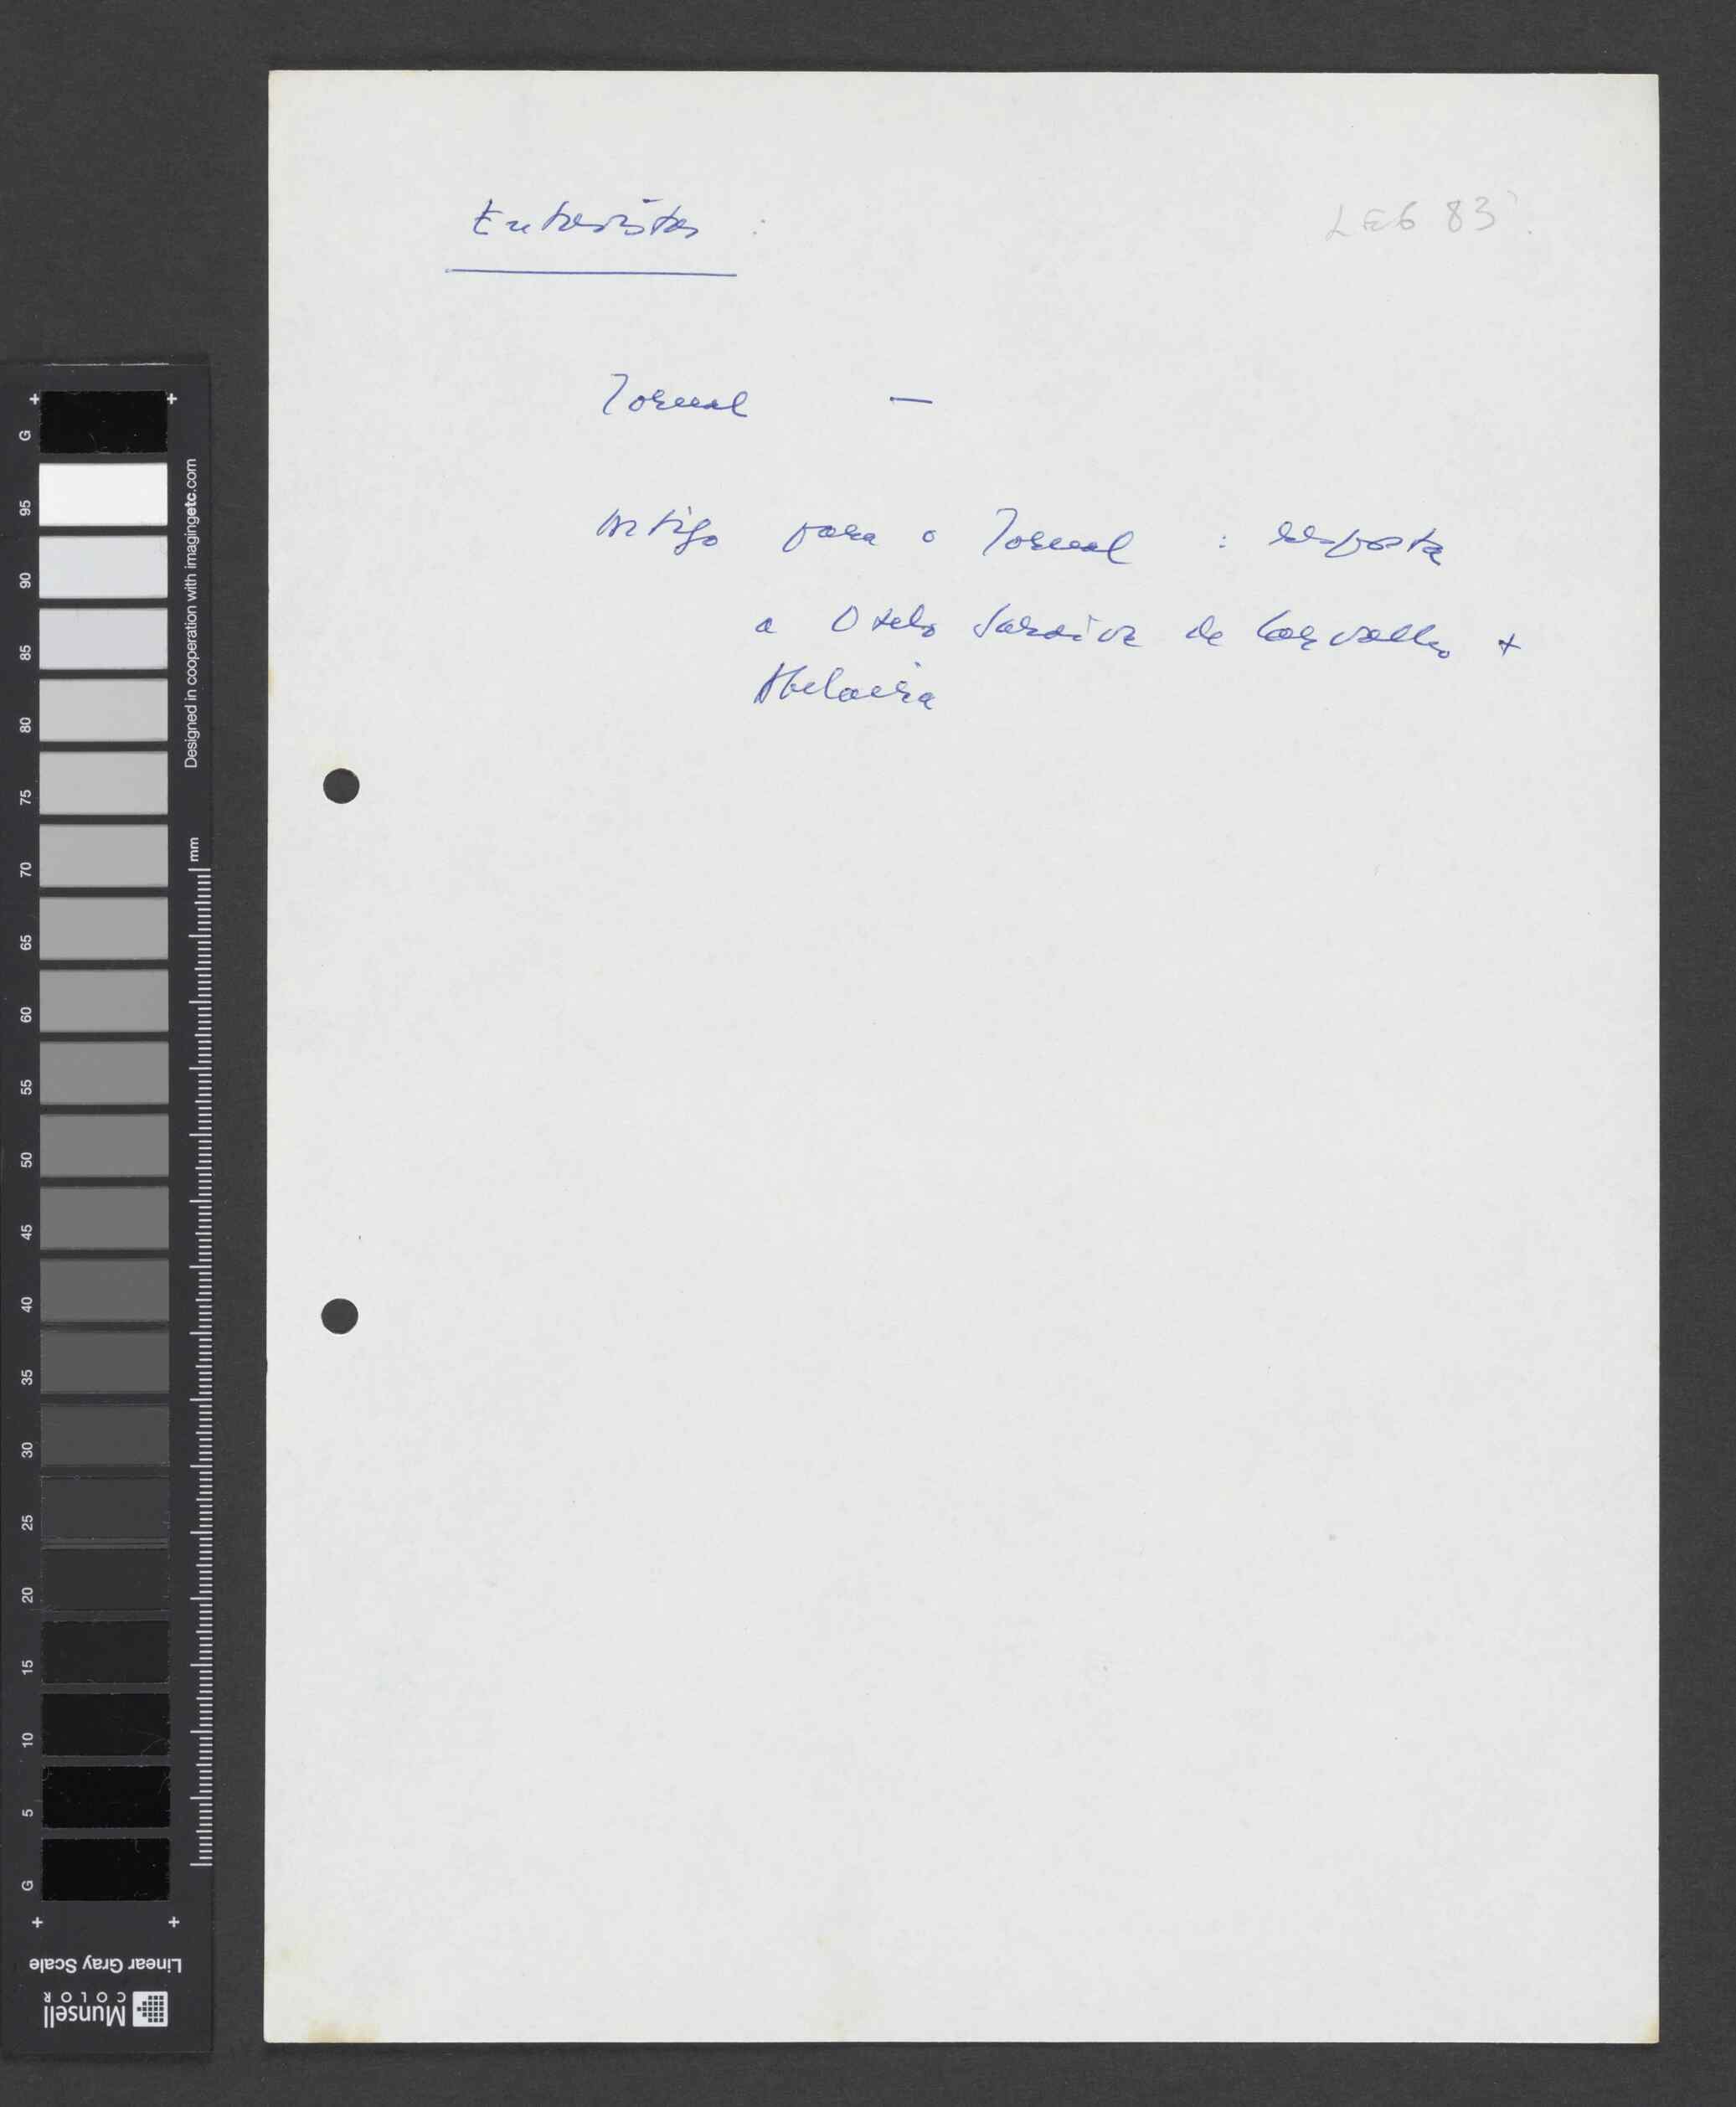 Entrevistas :
LEG 83
Jornal —
Artigo para o Jornal : resposta
a Otelo Saraiva de Carvalho +
Abelaira
G
95
90
85
80
75
70
65
60
55
50
45
40
35
30
25
20
15
10
5
G
Designed in cooperation with imagingetc.com
mm
Linear Gray Scale
Munsell
COLOR